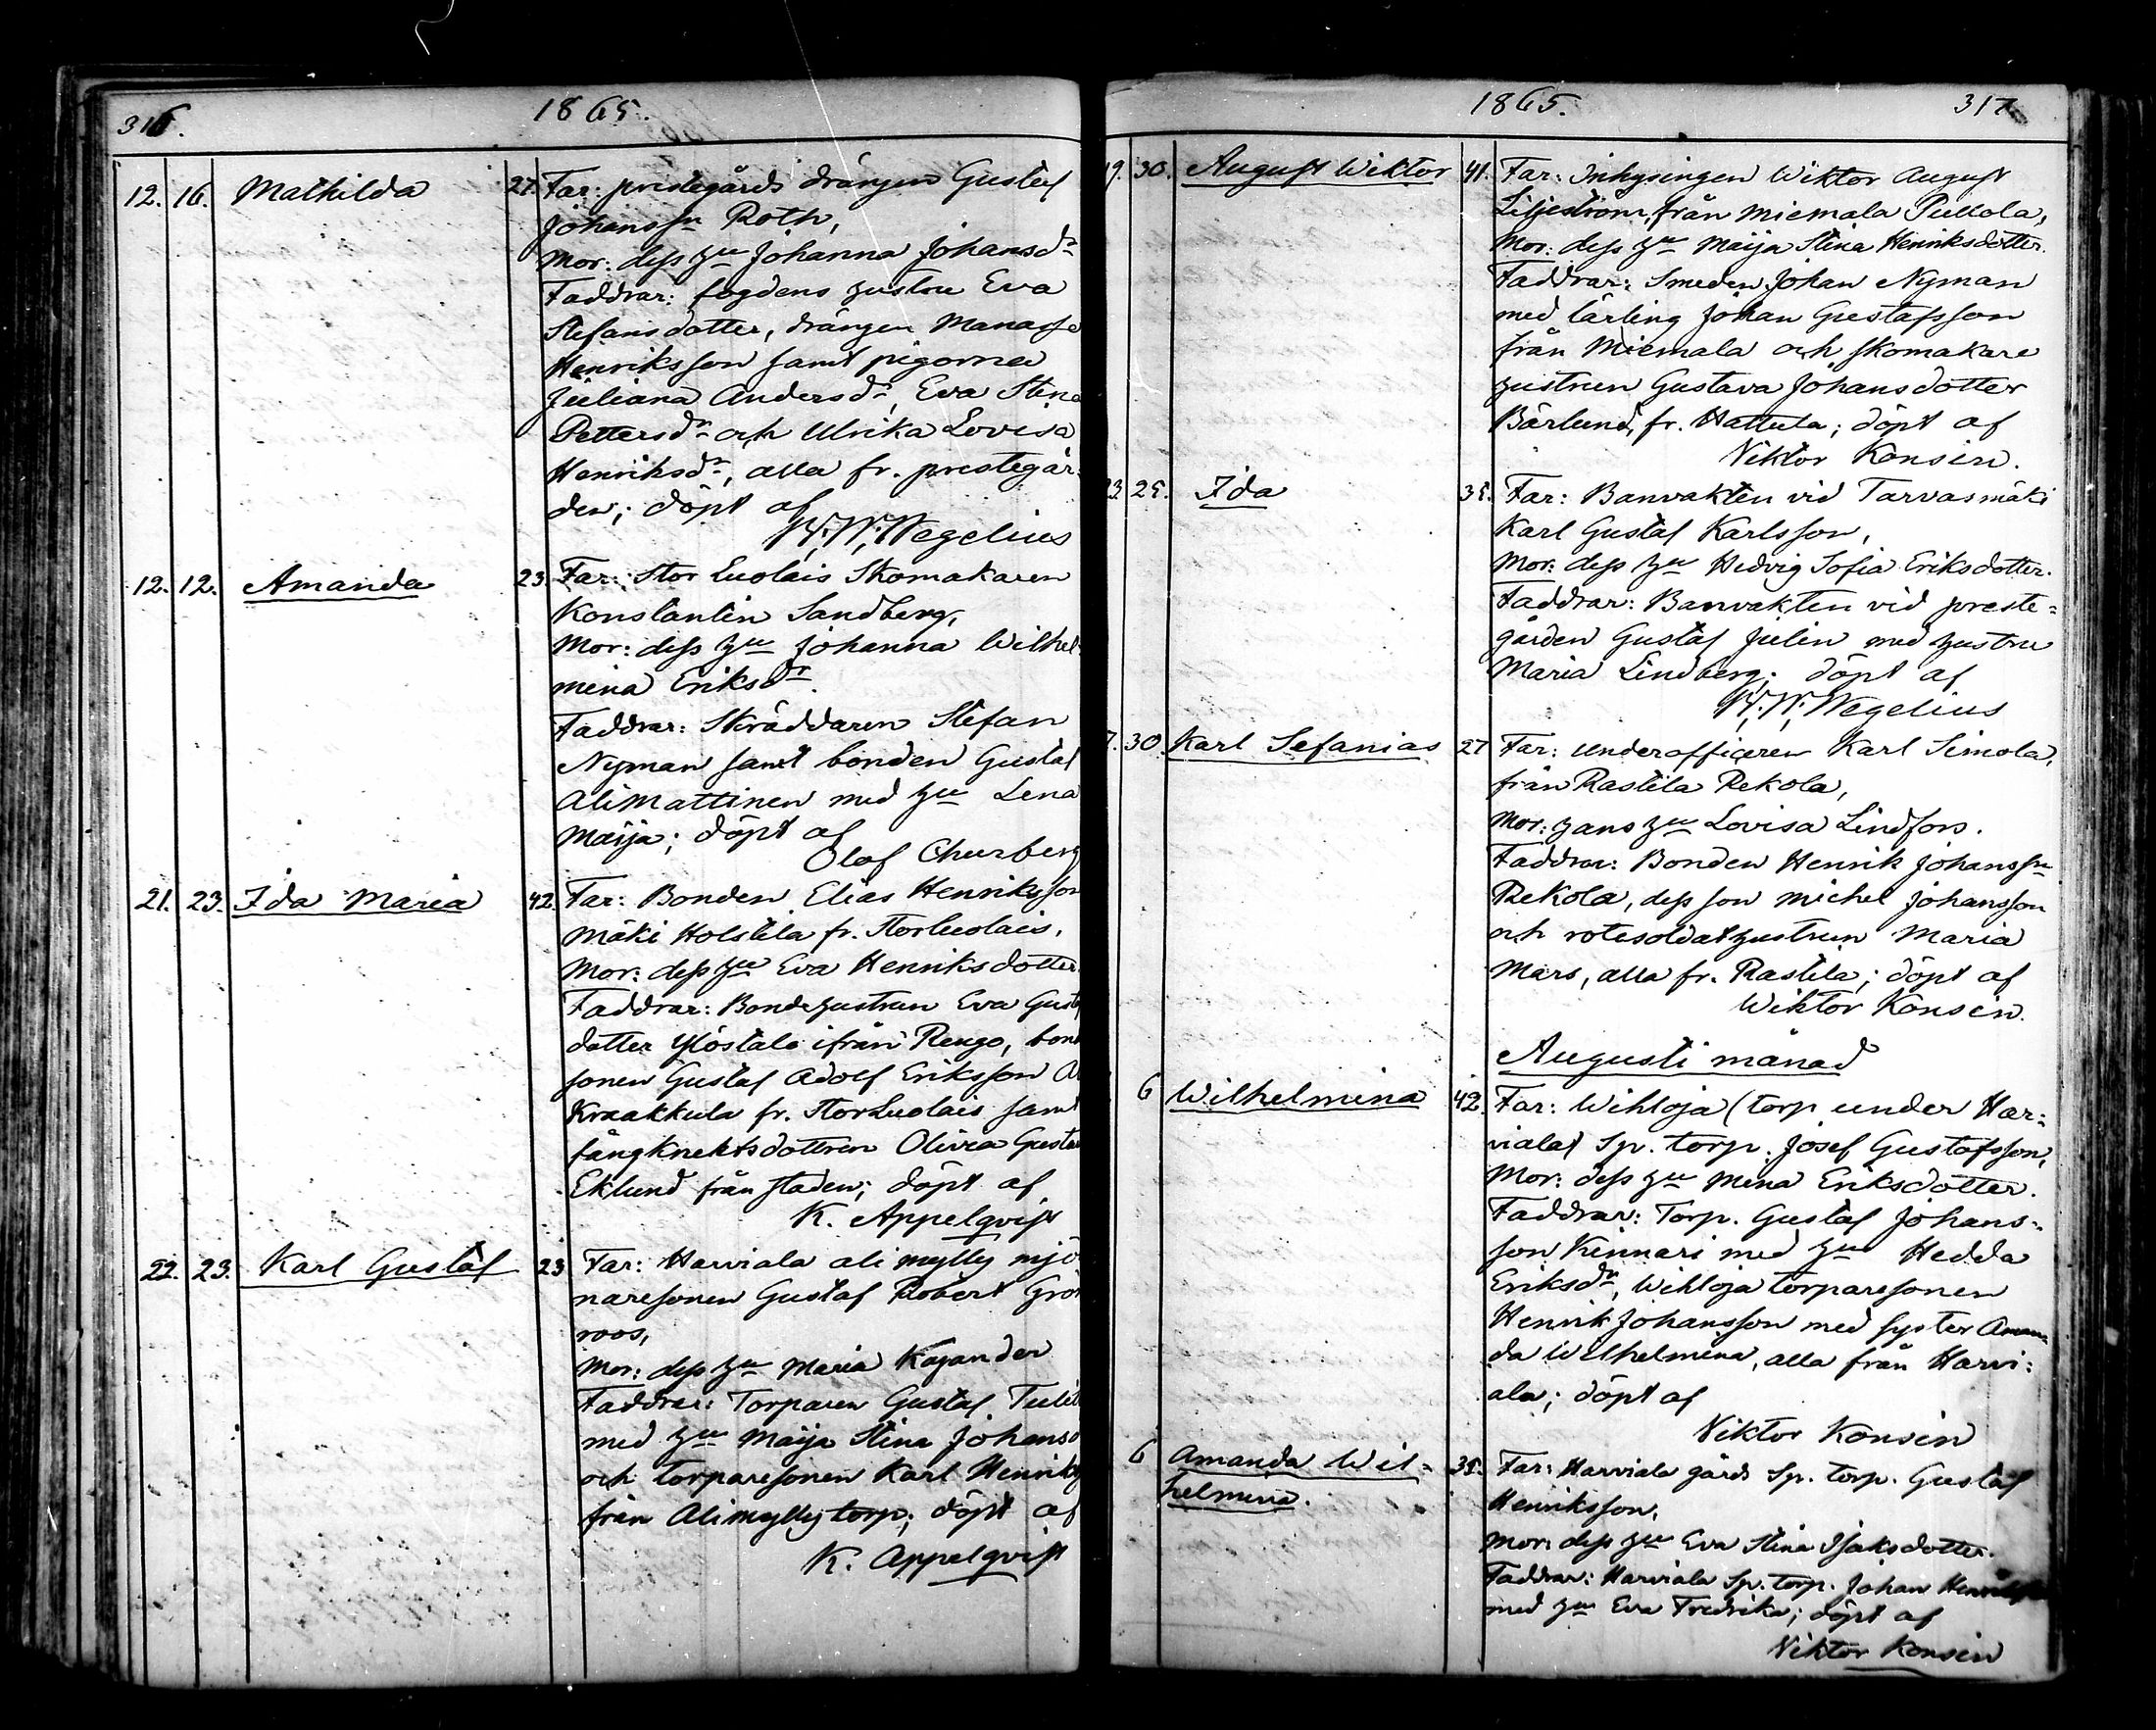 316.
1865.
12. 16. Mathilda 27. Far: prestegårds drängen Gustaf
Johanssn Roth,
Mor: dess hu Johanna Johansdr
Faddrar: fogdens hustru Eva
Stefansdotter, drängen Manasse
Henriksson samt pigorna
Juliana Andersdr, Eva Stina
Pettersdr och Ulrika Lovisa
Henriksdr, alla fr. prestegår-
den; döpt af
W. W. Wegelius
12. 12. Amanda 23. Far: Stor Luolais Skomakaren
Konstantin Sandberg,
Mor: dess hu Johanna Wilhel-
mina Eriksdr.
Faddrar: Skräddaren Stefan
Nyman samt bonden Gustaf
AliMattinen med hu Lena
Maija; döpt af
Olof Churberg
21. 23. Ida Maria 42. Far: Bonden Elias Henriksson
Mäki Holstila fr. StorLuolais,
Mor: dess hu Eva Henriksdotter
Faddrar: Bondehustrun Eva Gust
dotter Ylöstalo ifrån Rengo, bon
sonen Gustaf Adolf Eriksson
Kraakkula fr. StorLuolais samt
fångknektsdottren Olivia Gusta
Eklund från staden; döpt af
K. Appelqvist
22. 23. Karl Gustaf 23 Far: Harviala ali mylly mjö
naresonen Gustaf Robert Grön
roos,
Mor: dess hu Maria Kajander
Faddrar: Torparen Gustaf
med hu Maija Stina Johansd
och torparesonen Karl Henriks
från Alimylly torp; döpt af
K. Appelqvist
1865.
317
9. 30. August Wiktor 41. Far: Inhysingen Wiktor August
Liljeström, från Miemala Pullola,
Mor: dess hu Maija Stina Henriksdotter.
Faddrar: Smeden Johan Nyman
med lärling Johan Gustafsson
från Miemala och skomakare
hustrun Gustava Johansdotter
Bärlund, fr. Hattula; döpt af
Viktor Konsin.
23. 25. Ida 35. Far: Banvakten vid Tarvasmäki
Karl Gustaf Karlsson,
Mor: dess hu Hedvig Sofia Eriksdotter.
Faddrar: Banvakten vid preste-
gården Gustaf Julin med hustru
Maria Lindberg; döpt af
W. W. Wegelius
7. 30. Karl Sefanias 27 Far: Underofficeren Karl Simola,
från Rastila Rekola,
Mor: hans hu Lovisa Lindfors.
Faddrar: Bonden Henrik Johanssn
Rekola, dess son Michel Johansson
och rotesoldathustrun Maria
Mars, alla fr. Rastila; döpt af
Wiktor Konsin.
Augusti månad
6 Wilhelmina 42. Far: Wihloja (torp under Har-
viala) Sp. torp. Josef Gustafsson,
Mor: dess hu Mina Eriksdotter.
Faddrar: Torp. Gustaf Johans-
son Kinnari med hu Hedda
Eriksdr, Wihloja torparesonen
Henrik Johansson med syster Aman
da Wilhelmina, alla från Harvi-
ala; döpt af
Viktor Konsin
6 Amanda Wil- 35. Far: Harviala gårds Sp. torp. Gustaf
helmina. Henriksson,
Mor: dess hu Eva Stina Isaksdotter.
Faddrar: Harviala Sp. torp. Johan Henriksson
med hu Eva Fredrika; döpt af
Viktor Konsin